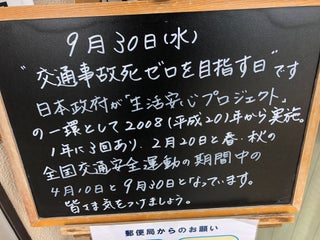 9月30日(水)
"交通事故死ゼロを目指す日"です
日本政府が「生活安心プロジェクト」
の一環として2008(平成20)年から実施。
1年に3回あり、2月20日と春・秋の
全国交通安全運動の期間中の
4月10日と9月30日となっています。
皆さま気をつけましょう。
郵便局からのお願い